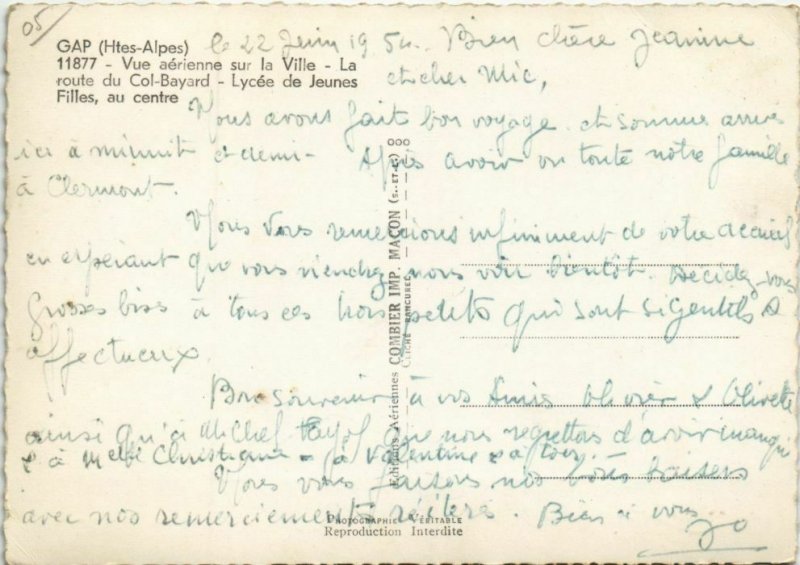 05
GAP (Htes-Alpes)
11877 - Vue aérienne sur la Ville - La
route du Col-Bayard - Lycée de Jeunes
Filles, au centre
le 22 Juin 1954. Bien chère Jeanine
et cher Mic,
Nous avons fait bon voyage et sommes arrivés
ici à minuit et demi - Après avoir vu toute notre famille
à Clermont.
Nous vous remercions infiniment de votre accueil
en espérant que vous viendrez nous voir bientôt. Décidez-vous
Grosses bises à tous ces trois petits qui sont si gentils &
affectueux
Bon souvenir à vos Amis Olivier & Olivette
ainsi qu'à Michel que nous regrettons d'avoir manqué
& à Melle Christiane - à Valentine & à tous.
Nous vous faisons nos baisers
avec nos remerciements réitérés. Bien à vous
Jo
Editions Aériennes COMBIER IMP. MACON (S.-ET-L.)
CLICHÉ RANCUREL
PHOTOGRAPHIE VÉRITABLE
Reproduction Interdite